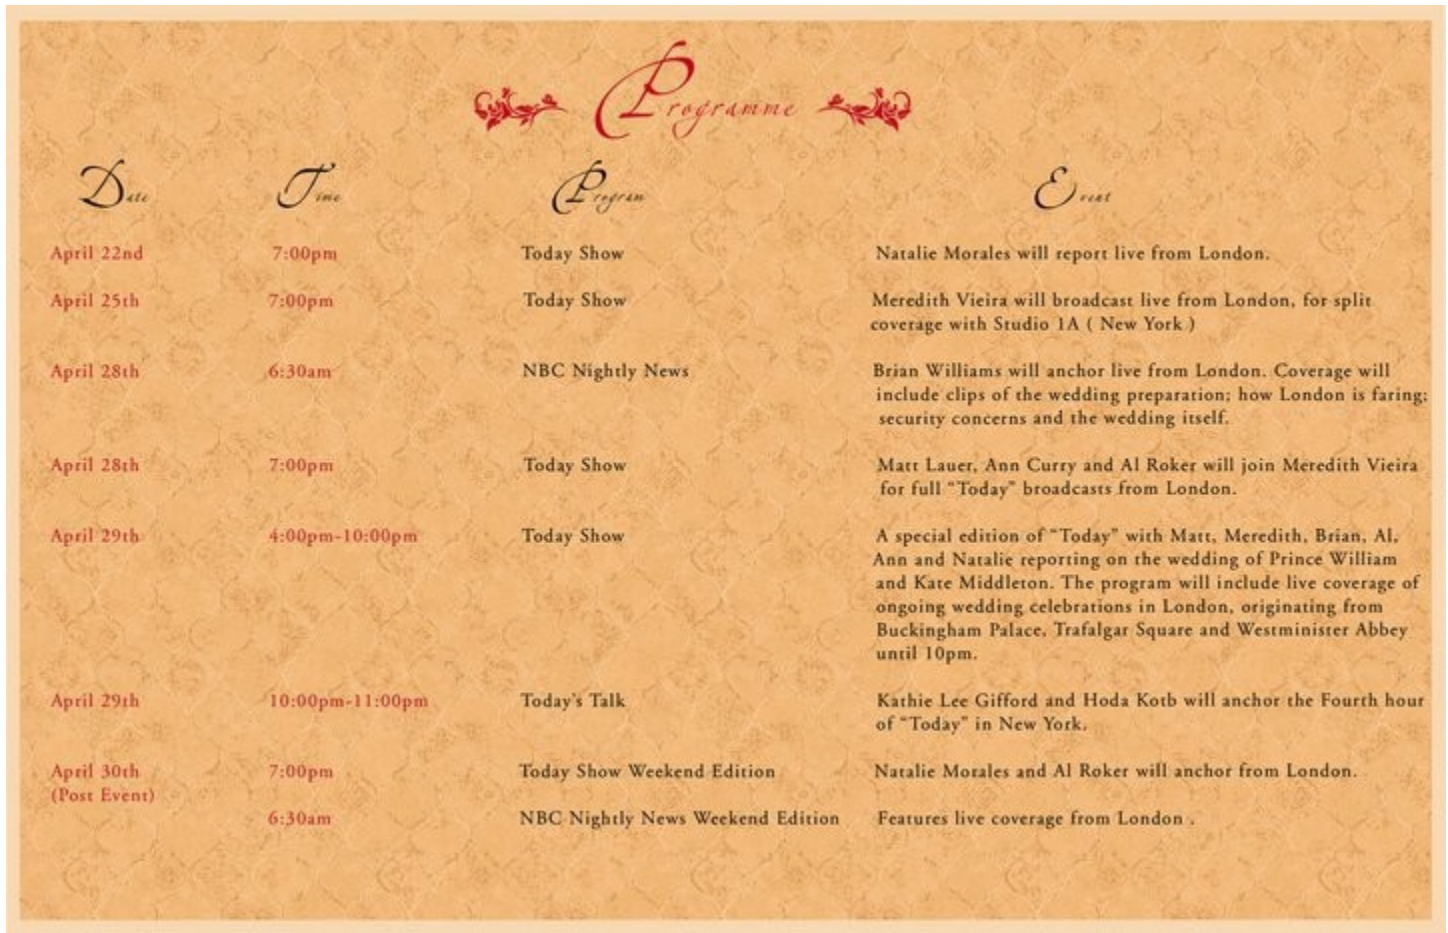 Programme
Date Time Program Event
April 22nd 7:00pm Today Show Natalie Morales will report live from London.
April 25th 7:00pm Today Show Meredith Vieira will broadcast live from London, for split
coverage with Studio 1A ( New York )
April 28th 6:30am NBC Nightly News Brian Williams will anchor live from London. Coverage will
include clips of the wedding preparation; how London is faring;
security concerns and the wedding itself.
April 28th 7:00pm Today Show Matt Lauer, Ann Curry and Al Roker will join Meredith Vieira
for full “Today” broadcasts from London.
April 29th 4:00pm-10:00pm Today Show A special edition of “Today” with Matt, Meredith, Brian, Al,
Ann and Natalie reporting on the wedding of Prince William
and Kate Middleton. The program will include live coverage of
ongoing wedding celebrations in London, originating from
Buckingham Palace, Trafalgar Square and Westminister Abbey
until 10pm.
April 29th 10:00pm-11:00pm Today's Talk Kathie Lee Gifford and Hoda Kotb will anchor the Fourth hour
of “Today” in New York.
April 30th 7:00pm Today Show Weekend Edition Natalie Morales and Al Roker will anchor from London.
(Post Event)
6:30am NBC Nightly News Weekend Edition Features live coverage from London .